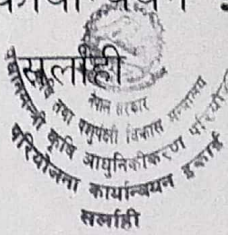 सर्लाही
नेपाल सरकार
कृषि तथा पशुपंक्षी विकास मन्त्रालय
प्रधानमन्त्री कृषि आधुनिकीकरण परियोजना
परियोजना कार्यान्वयन इकाई
सर्लाही